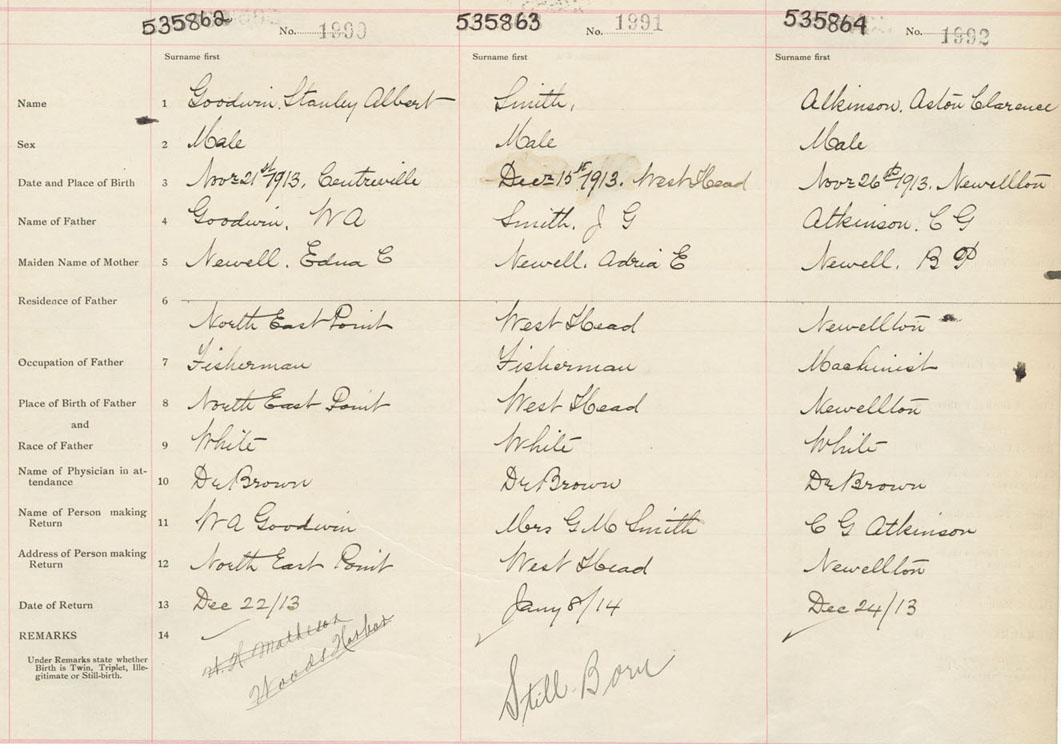 535862 No. 1990 535863 No. 1991 535864 No. 1992
Surname first Surname first Surname first
Name 1 Goodwin, Stanley Albert Smith, Atkinson, Aston Clarence
Sex 2 Male Male Male
Date and Place of Birth 3 Novr 21st 1913. Centreville Decr 15st 1913. West Head Novr 26th 1913. Newellton
Name of Father 4 Goodwin, W A Smith, J G Atkinson, C G
Maiden Name of Mother 5 Newell, Edna C Newell, Adria E Newell, B P
Residence of Father 6
North East Point West Head Newellton
Occupation of Father 7 Fisherman Fisherman Machinist
Place of Birth of Father 8 North East Point West Head Newellton
and
Race of Father 9 White White White
Name of Physician in at-
tendance 10 Dr Brown Dr Brown Dr Brown
Name of Person making
Return 11 W A Goodwin Mrs G M Smith C G Atkinson
Address of Person making
Return 12 North East Point West Head Newellton
Date of Return 13 Dec 22/13 Jany 8/14 Dec 24/13
REMARKS 14
Under Remarks state whether
Birth is Twin, Triplet, Ille-
gitimate or Still-birth.
Woods Harbor
Still Born